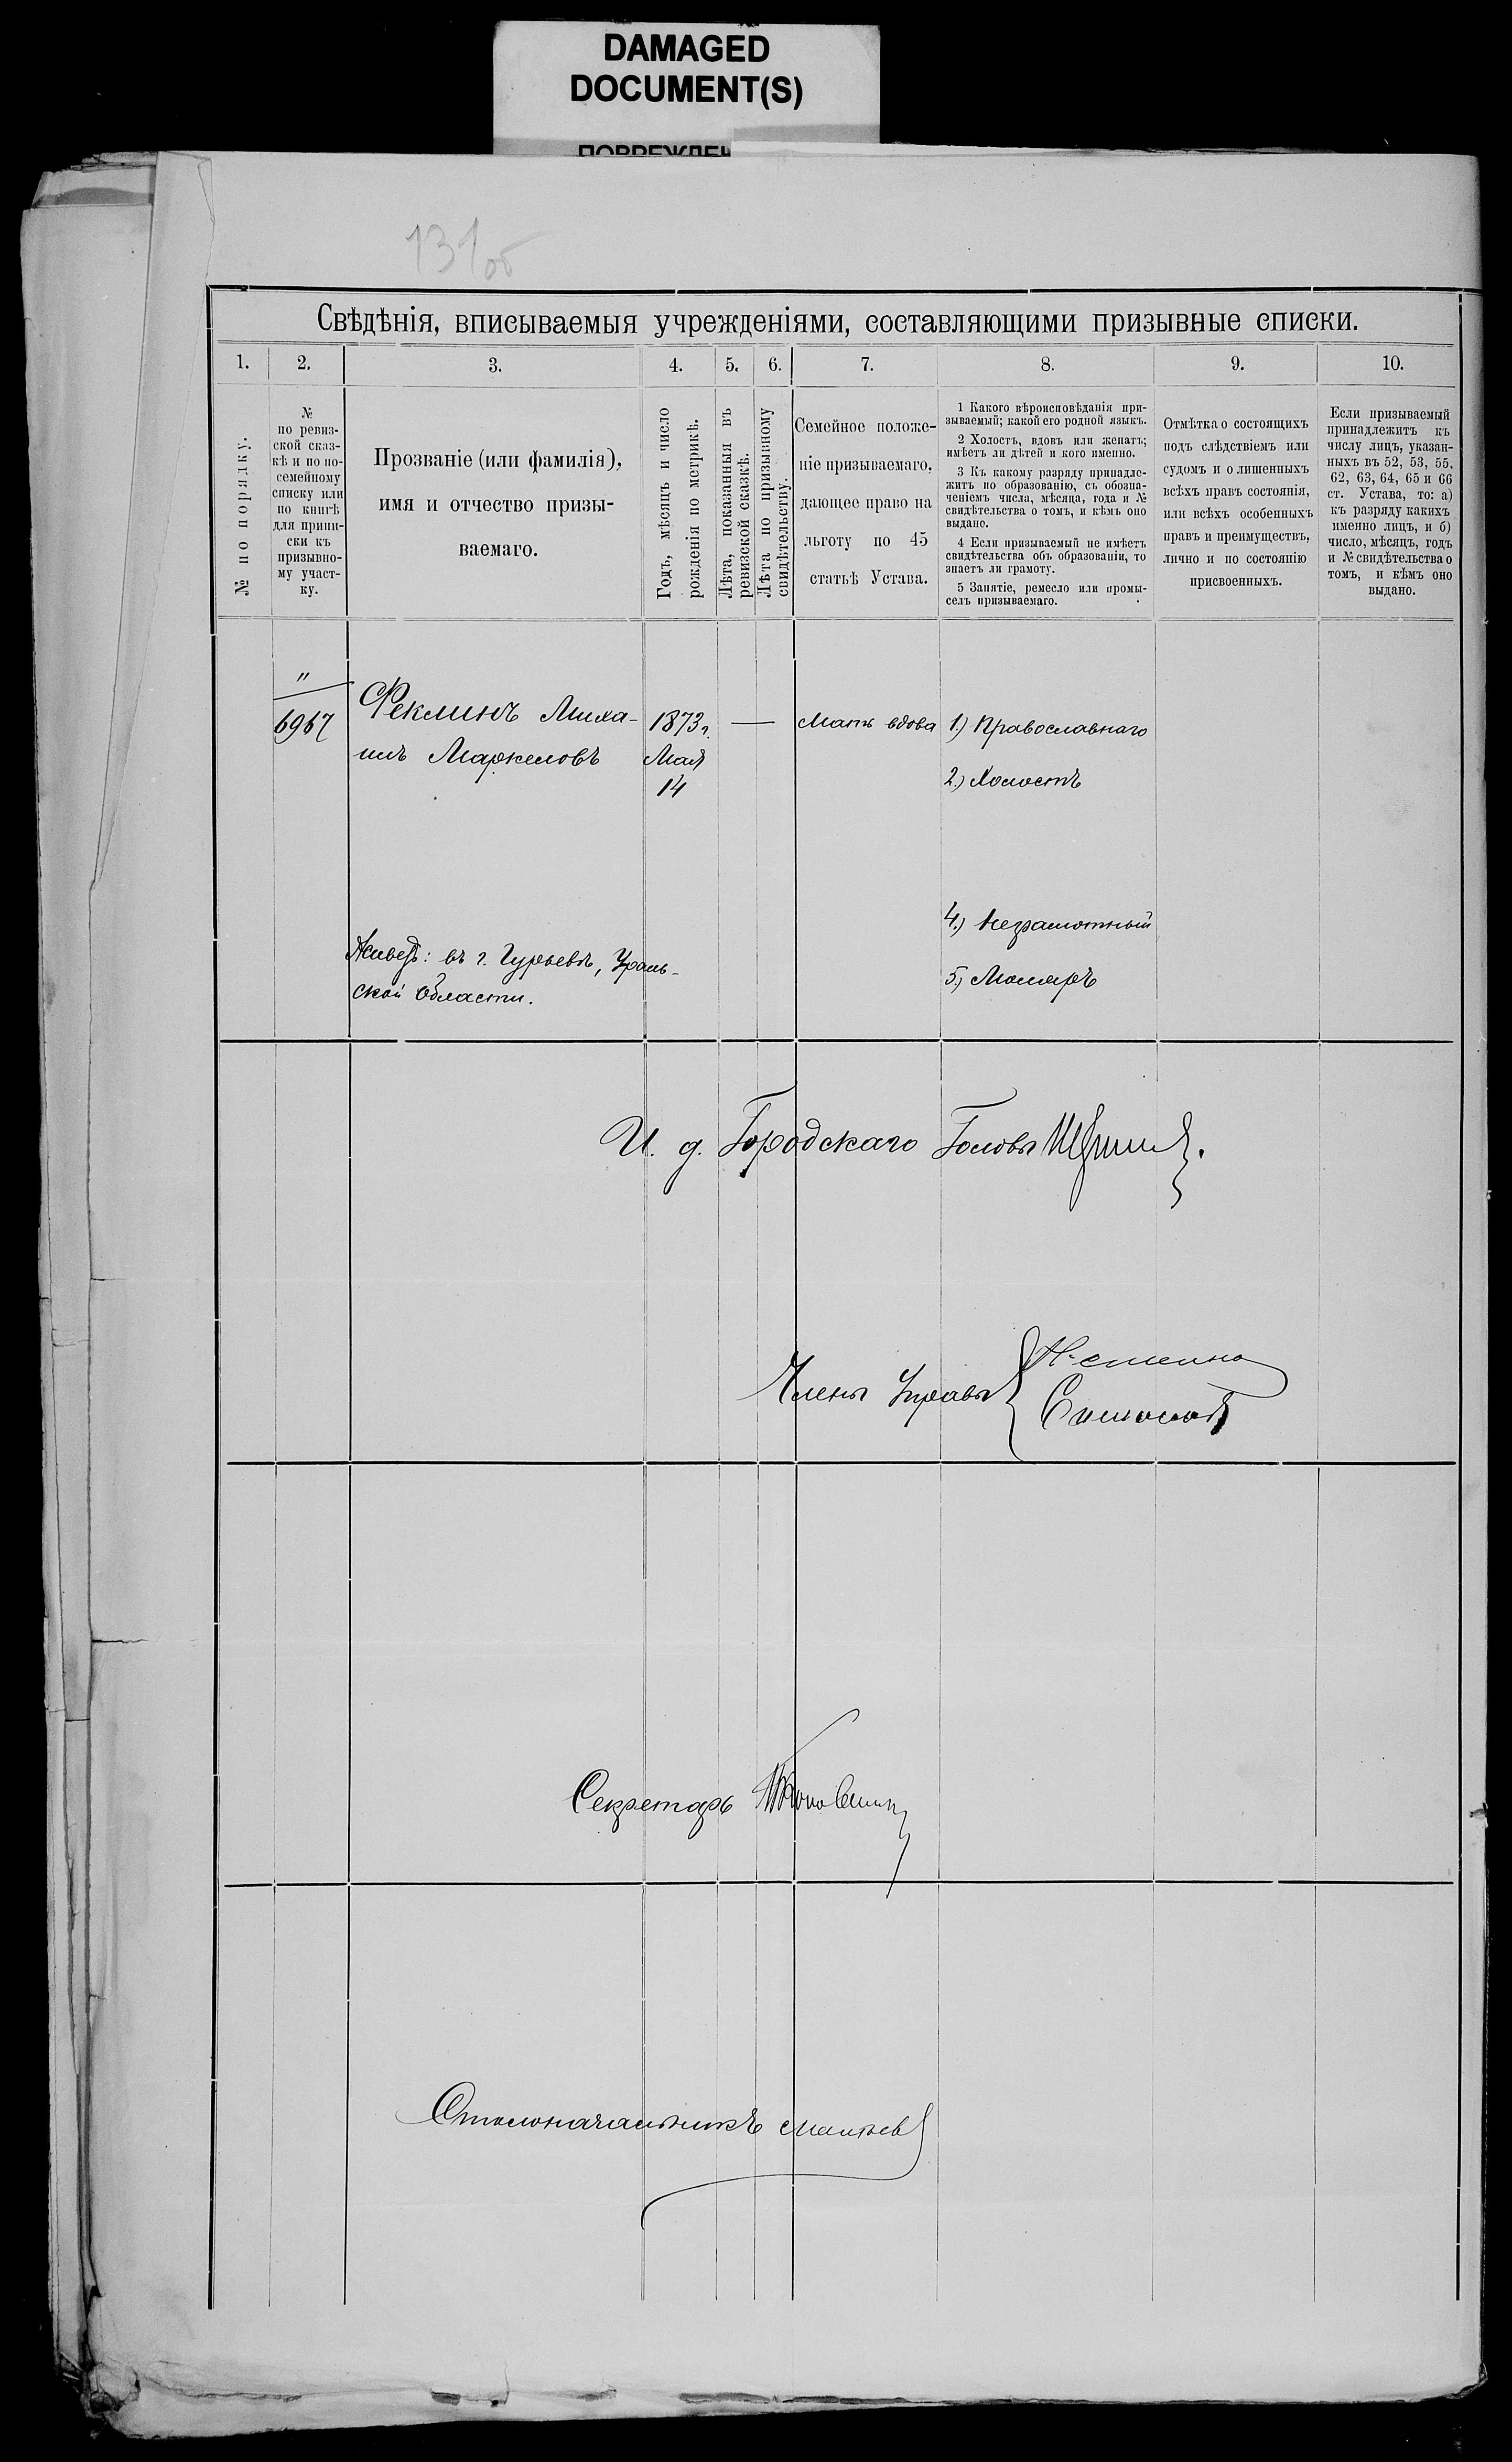 DAMAGED
DOCUMENT(S)
131об
Свѣдѣнія, вписываемыя учрежденіями, составляющими призывные списки.
1. 2. 3. 4. 5. 6. 7. 8. 9. 10.
№ по порядку.
№
по ревиз-
ской сказ-
кѣ и по по-
семейному
списку или
по книгѣ
для припи-
ски къ
призывно-
му участ-
ку.
Прозваніе (или фамилія),
имя и отчество призы-
ваемаго.
Годъ, мѣсяцъ и число
рожденія по метрикѣ.
Лѣта, показанныя въ
ревизской сказкѣ.
Лѣта по призывному
свидѣтельству.
Семейное положе-
ніе призываемаго,
дающее право на
льготу по 45
статьѣ Устава.
1 Какого вѣроисповѣданія при-
зываемый; какой его родной языкъ.
2 Холостъ, вдовъ или женатъ;
имѣетъ ли дѣтей и кого именно.
3 Къ какому разряду принадле-
житъ по образованію, съ обозна-
ченіемъ числа, мѣсяца, года и №
свидѣтельства о томъ, и кѣмъ оно
выдано.
4 Если призываемый не имѣетъ
свидѣтельства объ образованіи, то
знаетъ ли грамоту.
5 Занятіе, ремесло или промы-
селъ призываемаго.
Отмѣтка о состоящихъ
подъ слѣдствіемъ или
судомъ и о лишенныхъ
всѣхъ правъ состоянія,
или всѣхъ особенныхъ
правъ и преимуществъ,
лично и по состоянію
присвоенныхъ.
Если призываемый
принадлежитъ къ
числу лицъ, указан-
ныхъ въ 52, 53, 55,
62, 63, 64, 65 и 66
ст. Устава, то: а)
къ разряду какихъ
именно лицъ, и б)
число, мѣсяцъ, годъ
и № свидѣтельства о
томъ, и кѣмъ оно
выдано.
"
6967
Феклинъ Миха-
илъ Маркеловъ
1873 г.
Мая
14
—
Мать вдова
1.) Православнаго
2.) Холостъ
4.) Неграмотный
5.) Маляръ
Живетъ: въ г. Гурьевѣ, Ураль-
ской области.
И. д. Городскаго Головы
Члены Управы
Секретарь
Столоначальникъ